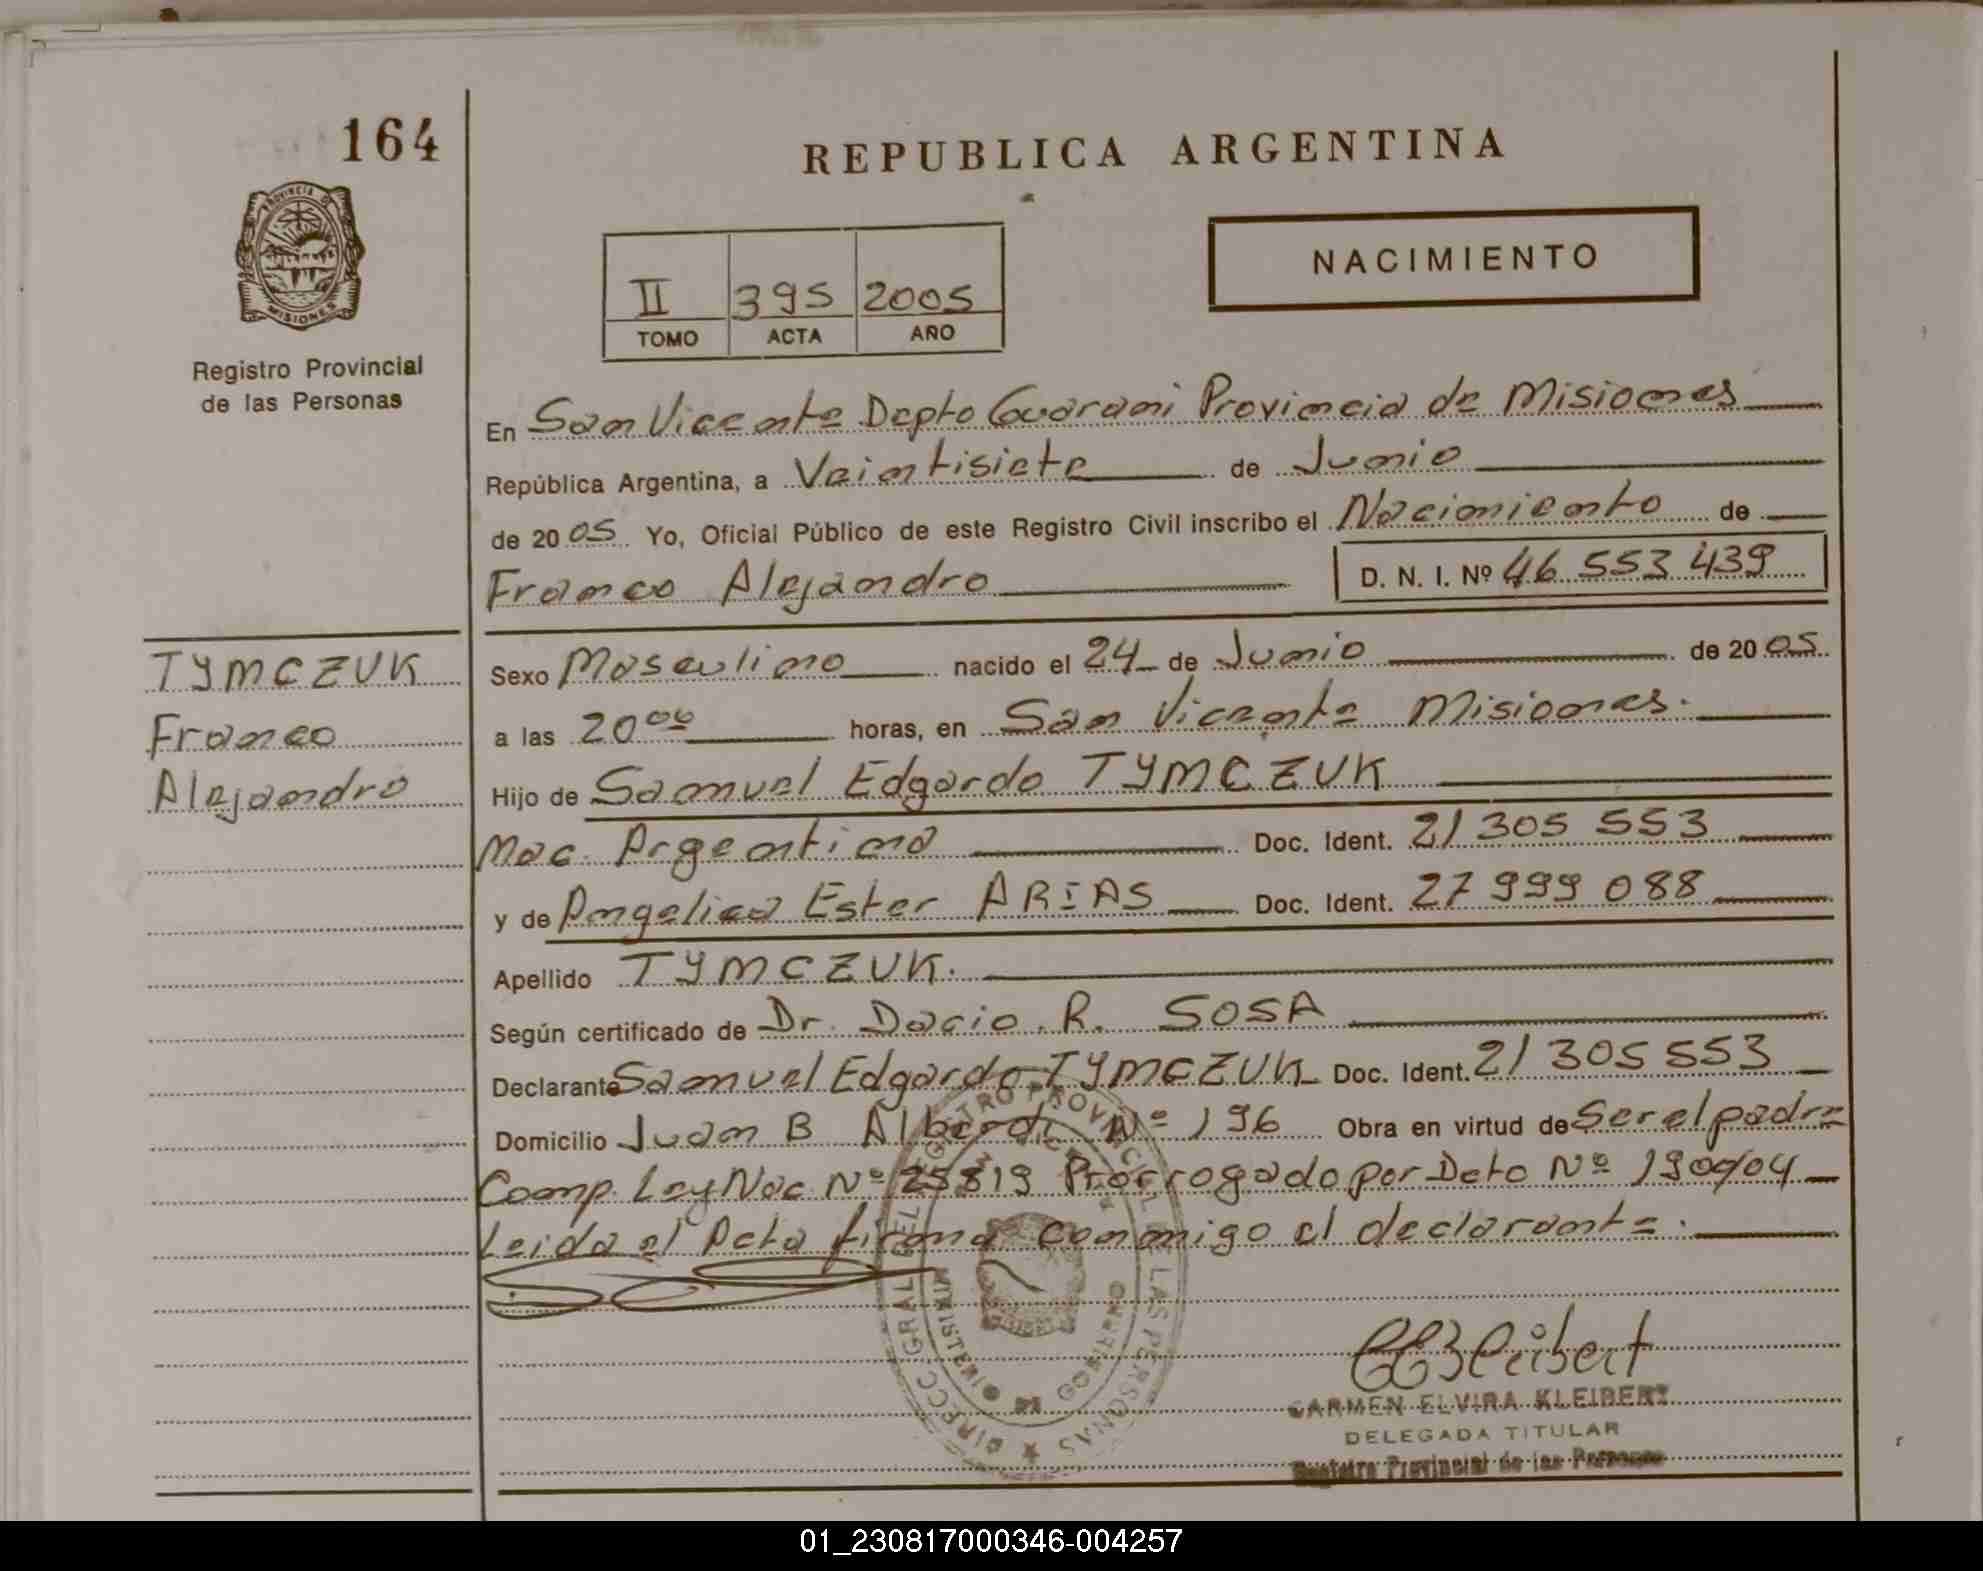 164
PROVINCIA DE
MISIONES
Registro Provincial
de las Personas
REPUBLICA ARGENTINA
II 395 2005
TOMO ACTA AÑO
NACIMIENTO
En San Vicente Depto Guarani Provincia de Misiones
República Argentina, a Veintisiete de Junio
de 2005 Yo, Oficial Público de este Registro Civil inscribo el Nacimiento de
Franco Alejandro D. N. I. Nº 46 553 439
TYMCZUK
Franco
Alejandro
Sexo Masculino nacido el 24 de Junio de 2005
a las 20 00 horas, en San Vicente Misiones.
Hijo de Samuel Edgardo TYMCZUK
Nac. Argentina Doc. Ident. 21 305 553
y de Angelica Ester ARIAS Doc. Ident. 27 999 088
Apellido TYMCZUK.
Según certificado de Dr. Dacio. R. SOSA
Declarante Samuel Edgardo TYMCZUK Doc. Ident. 21 305 553
Domicilio Juan B Alberdi Nº 196 Obra en virtud de Ser el padre
Comp. Ley Nac Nº 25819 Prorrogado por Dcto Nº 1900/04
Leida el Acta firma conmigo el declarante.
DIRECC GRAL DEL REGISTRO PROVINCIAL DE LAS PERSONAS
MINISTERIO DE GOBIERNO
CARMEN ELVIRA KLEIBERT
DELEGADA TITULAR
Registro Provincial de las Personas
01_230817000346-004257